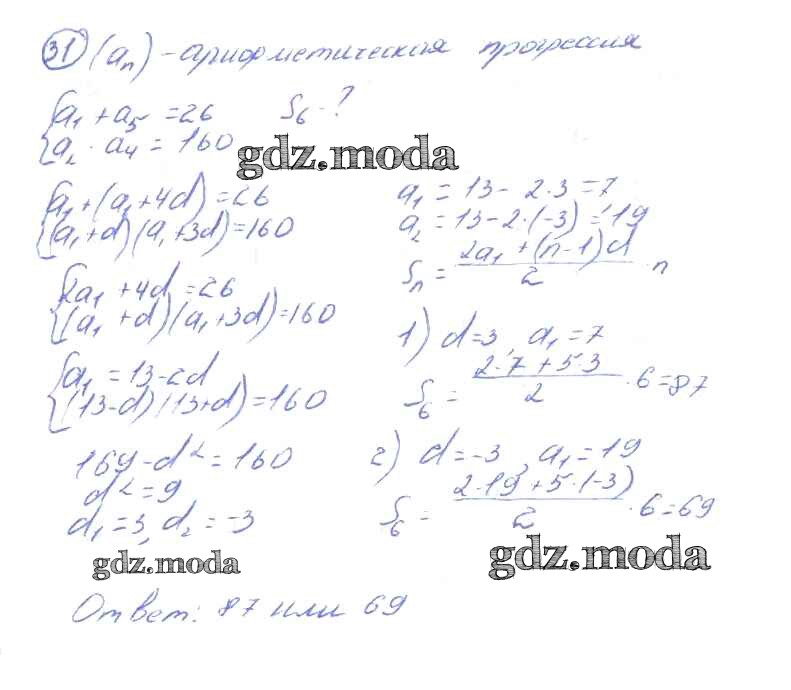 31 (aₙ) - арифметическая прогрессия
{a₁ + a₅ = 26 S₆ - ?
{a₂ · a₄ = 160
gdz.moda
{a₁ + (a₁ + 4d) = 26
{(a₁ + d)(a₁ + 3d) = 160
{2a₁ + 4d = 26
{(a₁ + d)(a₁ + 3d) = 160
{a₁ = 13 - 2d
{(13 - d)(13 + d) = 160
169 - d² = 160
d² = 9
d₁ = 3, d₂ = -3
gdz.moda
a₁ = 13 - 2·3 = 7
a₂ = 13 - 2·(-3) = 19
Sₙ = (2a₁ + (n-1)d)/2 · n
1) d = 3, a₁ = 7
S₆ = (2·7 + 5·3)/2 · 6 = 87
2) d = -3, a₁ = 19
S₆ = (2·19 + 5·(-3))/2 · 6 = 69
gdz.moda
Ответ: 87 или 69